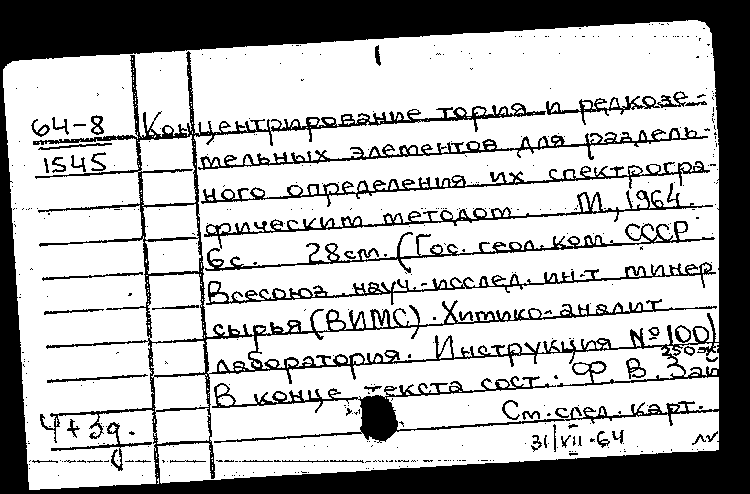 64-8
1545
Концентрирование тория и редкозе-
мельных элементов для раздель-
ного определения их спектрогра-
фическим методом. М., 1964.
6с. 28 см. (Гос. геол. ком. СССР
Всесоюз. науч.-исслед. ин-т минер
сырья (ВИМС). Химико-аналит
лаборатория. Инструкция № 100)
В конце текста сост.: Ф. В. Зай
См. след. карт.
4+3д.
31/VII-64